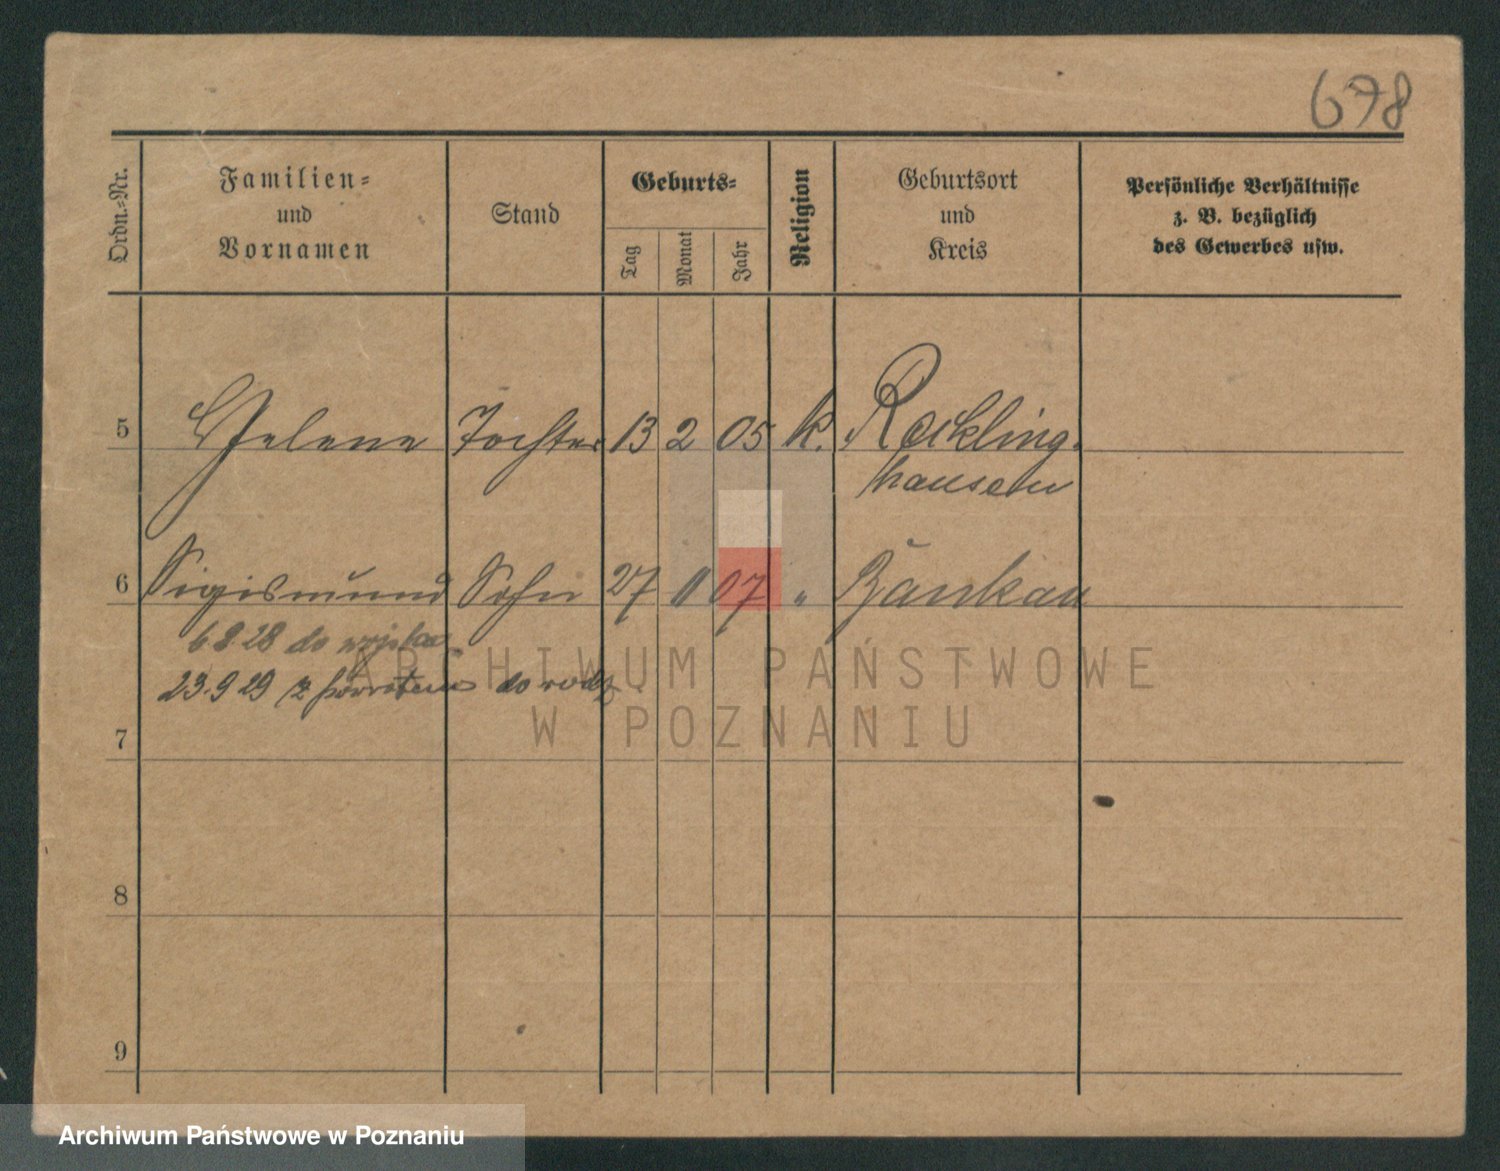 678
Ordn.-Nr.
Familien-
und
Vornamen
Stand
Geburts-
Tag
Monat
Jahr
Religion
Geburtsort
und
Kreis
Persönliche Verhältnisse
z. B. bezüglich
des Gewerbes usw.
5 Helene Tochter 13 2 05 k. Reckling-
hausen
6 Sigismund Sohn 27 11 07 "
6 8 28 do wojska
23.9 29 z powrotem do rodz
7
8
9
ARCHIWUM PAŃSTWOWE
W POZNANIU
Archiwum Państwowe w Poznaniu